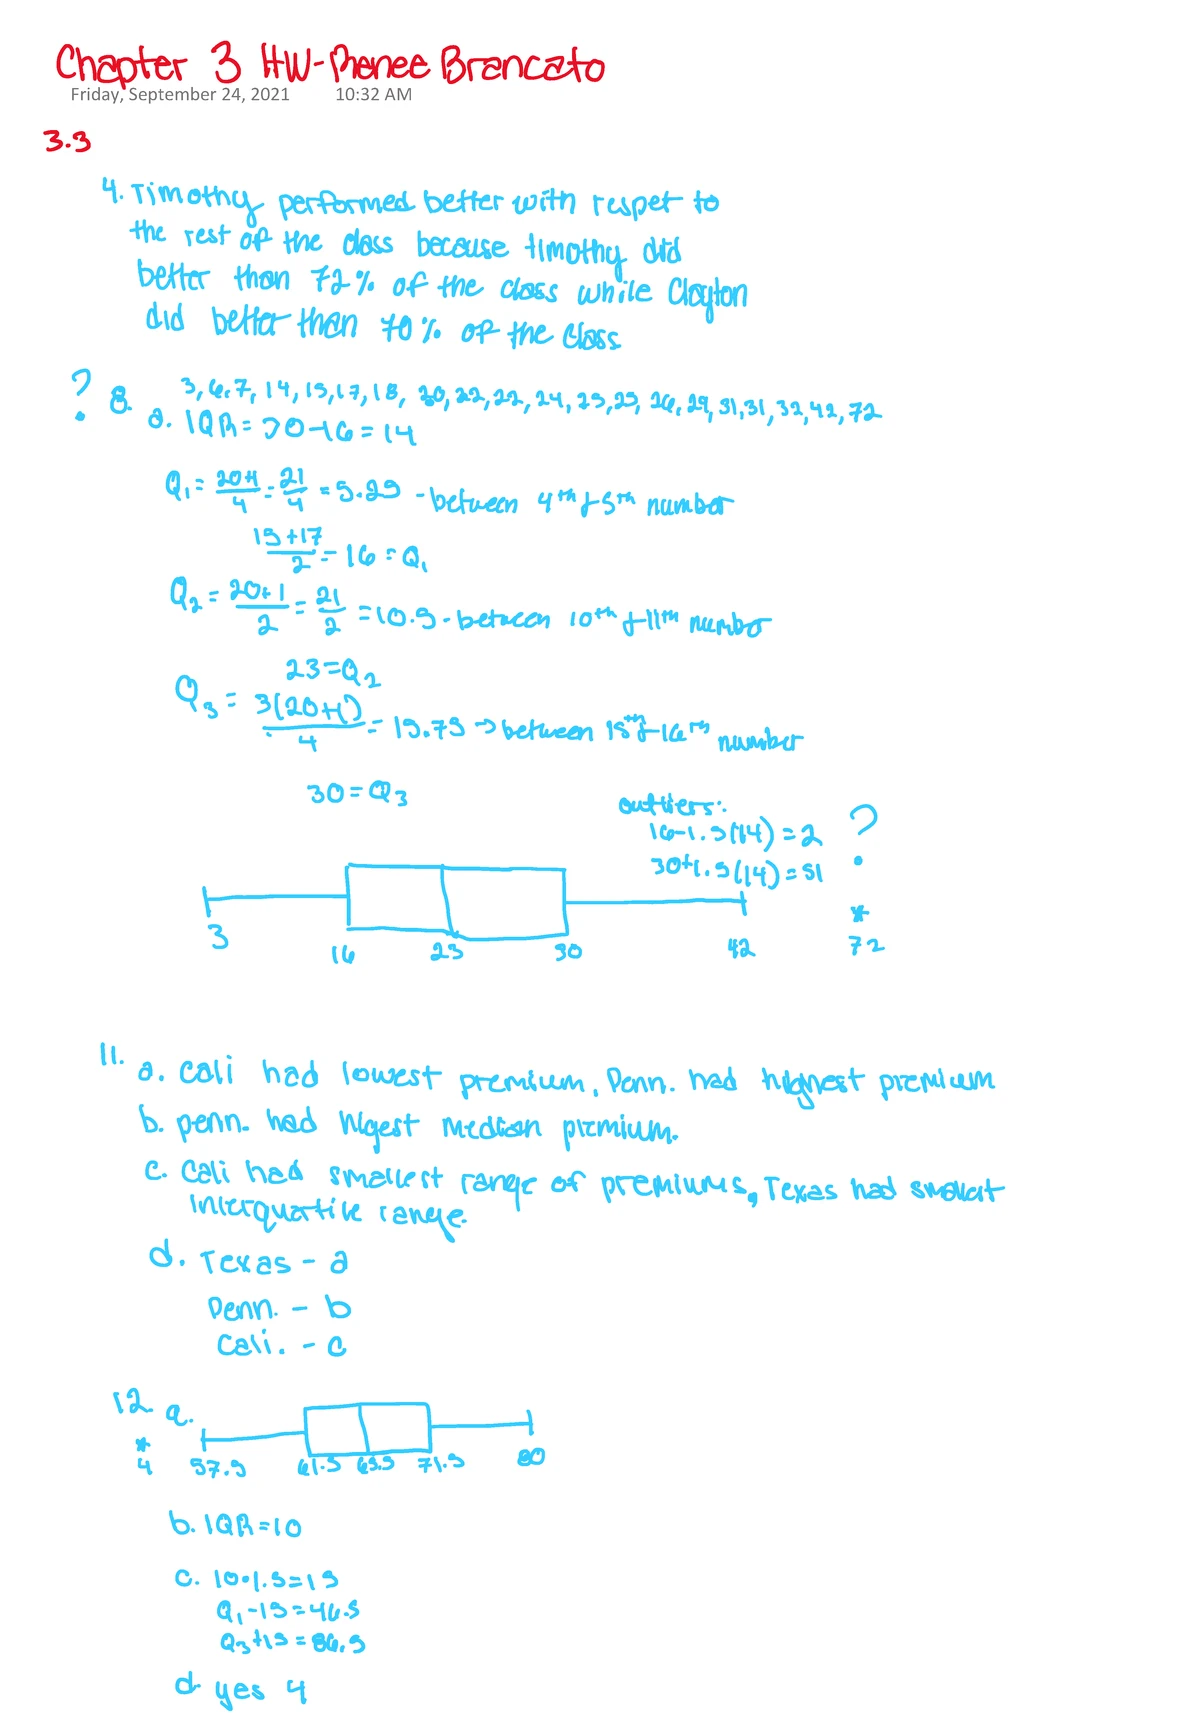 Chapter 3 HW-Renee Brancato
Friday, September 24, 2021 10:32 AM
3.3
4. Timothy performed better with respet to
the rest of the class because timothy did
better than 72% of the class while Clayton
did better than 70% of the class
? 8. 3, 6, 7, 14, 15, 17, 18, 20, 22, 22, 24, 25, 25, 26, 29, 31, 31, 32, 42, 72
a. IQR = 30-16 = 14
Q1 = 20+1/4 = 21/4 = 5.25 - between 4th & 5th number
15+17/2 = 16 = Q1
Q2 = 20+1/2 = 21/2 = 10.5 - between 10th & 11th number
23 = Q2
Q3 = 3(20+1)/4 = 15.75 → between 15th & 16th number
30 = Q3
outliers:
16-1.5(14) = 2 ?
30+1.5(14) = 51
3 16 23 30 42 * 72
11.
a. Cali had lowest premium, Penn. had highest premium
b. penn. had higest median premium.
c. Cali had smallest range of premiums, Texas had smallest
interquartile range.
d. Texas - a
Penn. - b
Cali. - c
12. a.
* 4 57.5 61.5 65.5 71.5 80
b. IQR = 10
c. 10•1.5=15
Q1-15=46.5
Q3+15=86.5
d yes 4